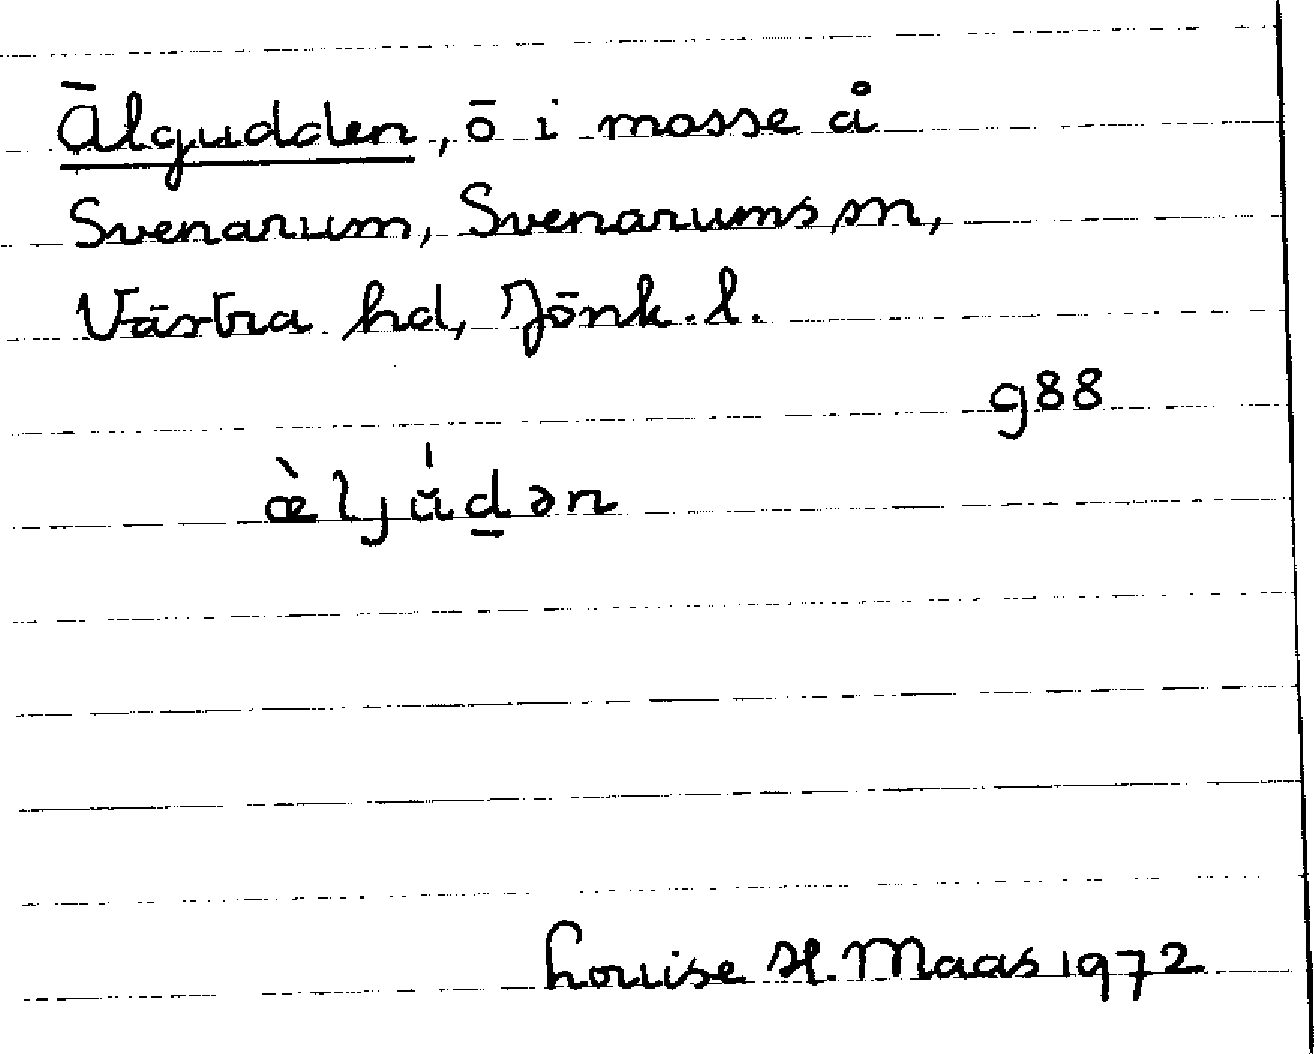 Älgudden, ö i mosse å
Svenarum, Svenarums sn,
Västra hd, Jönk. l.
988
æ̀ljŭ̍d̲ən
Louise H. Maas 1972